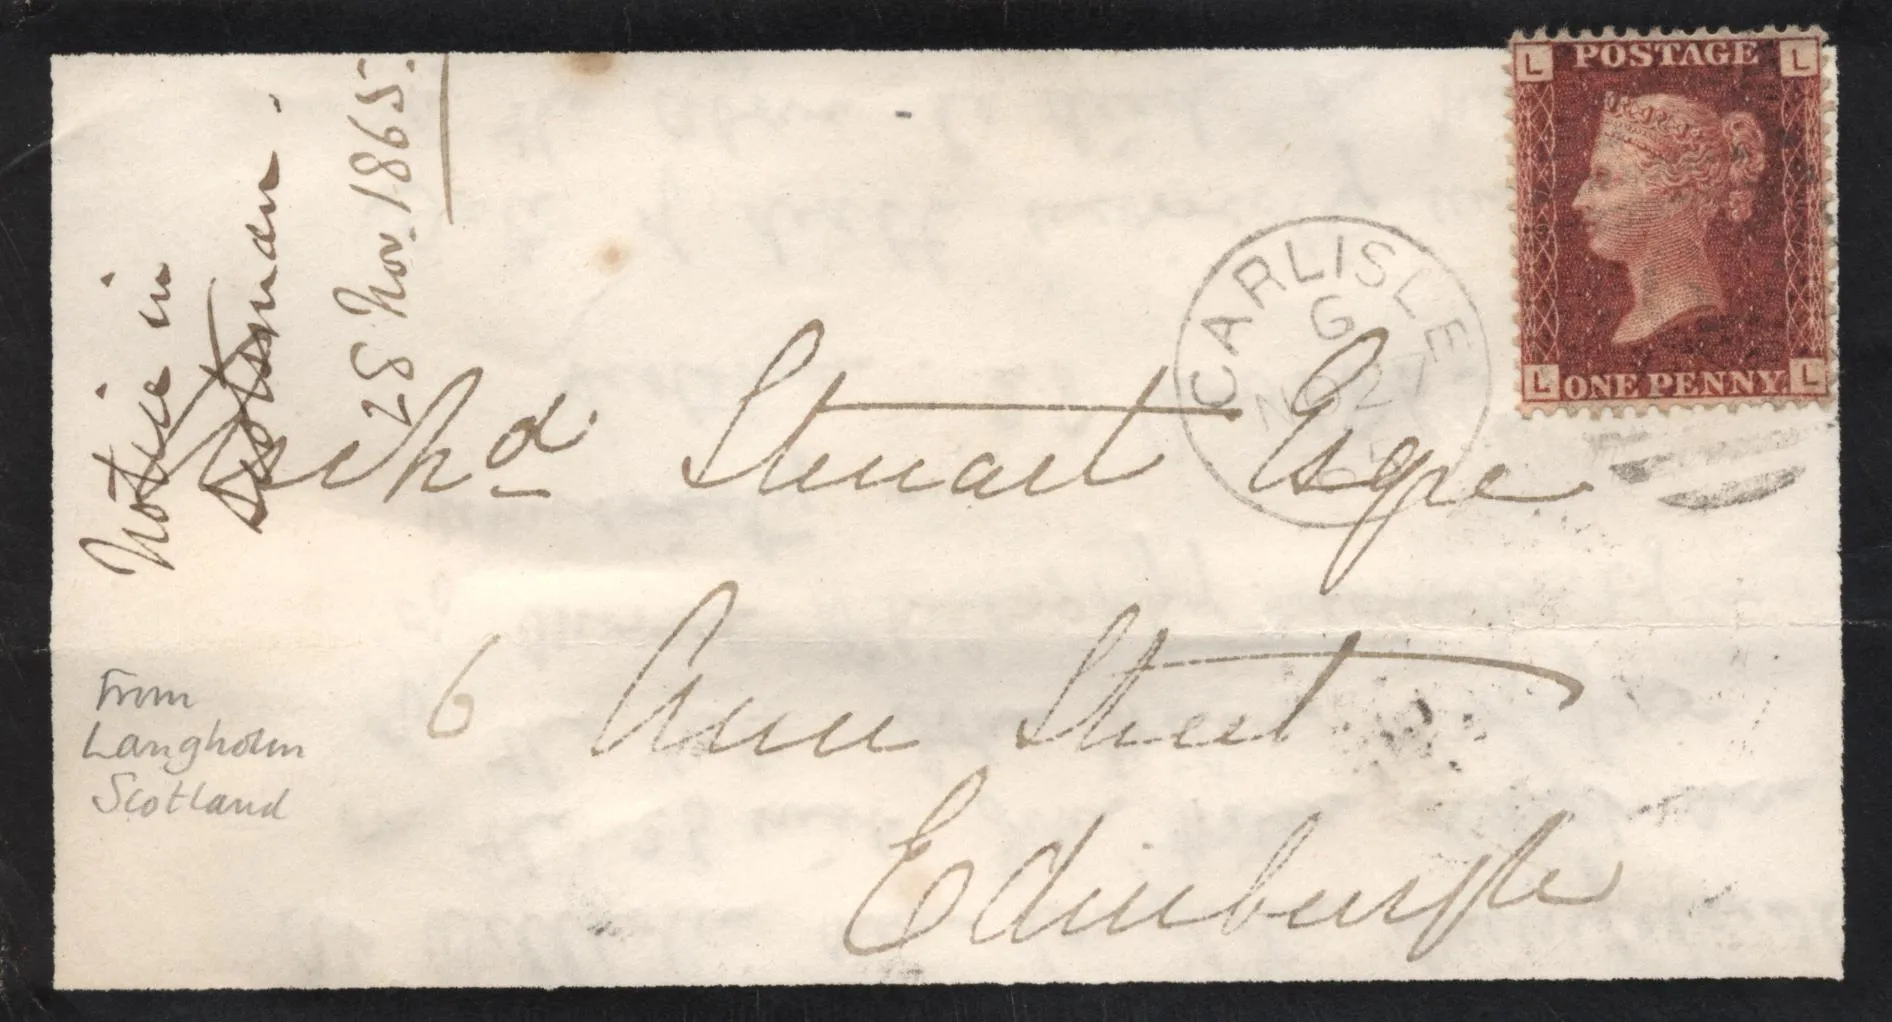 Notice in
Scotsman.
28 Nov. 1865.
L POSTAGE L
L ONE PENNY. L
CARLISLE
G
NO 27
65
Archd Steuart Esqre
6 Ann Street
Edinburgh
From
Langholm
Scotland